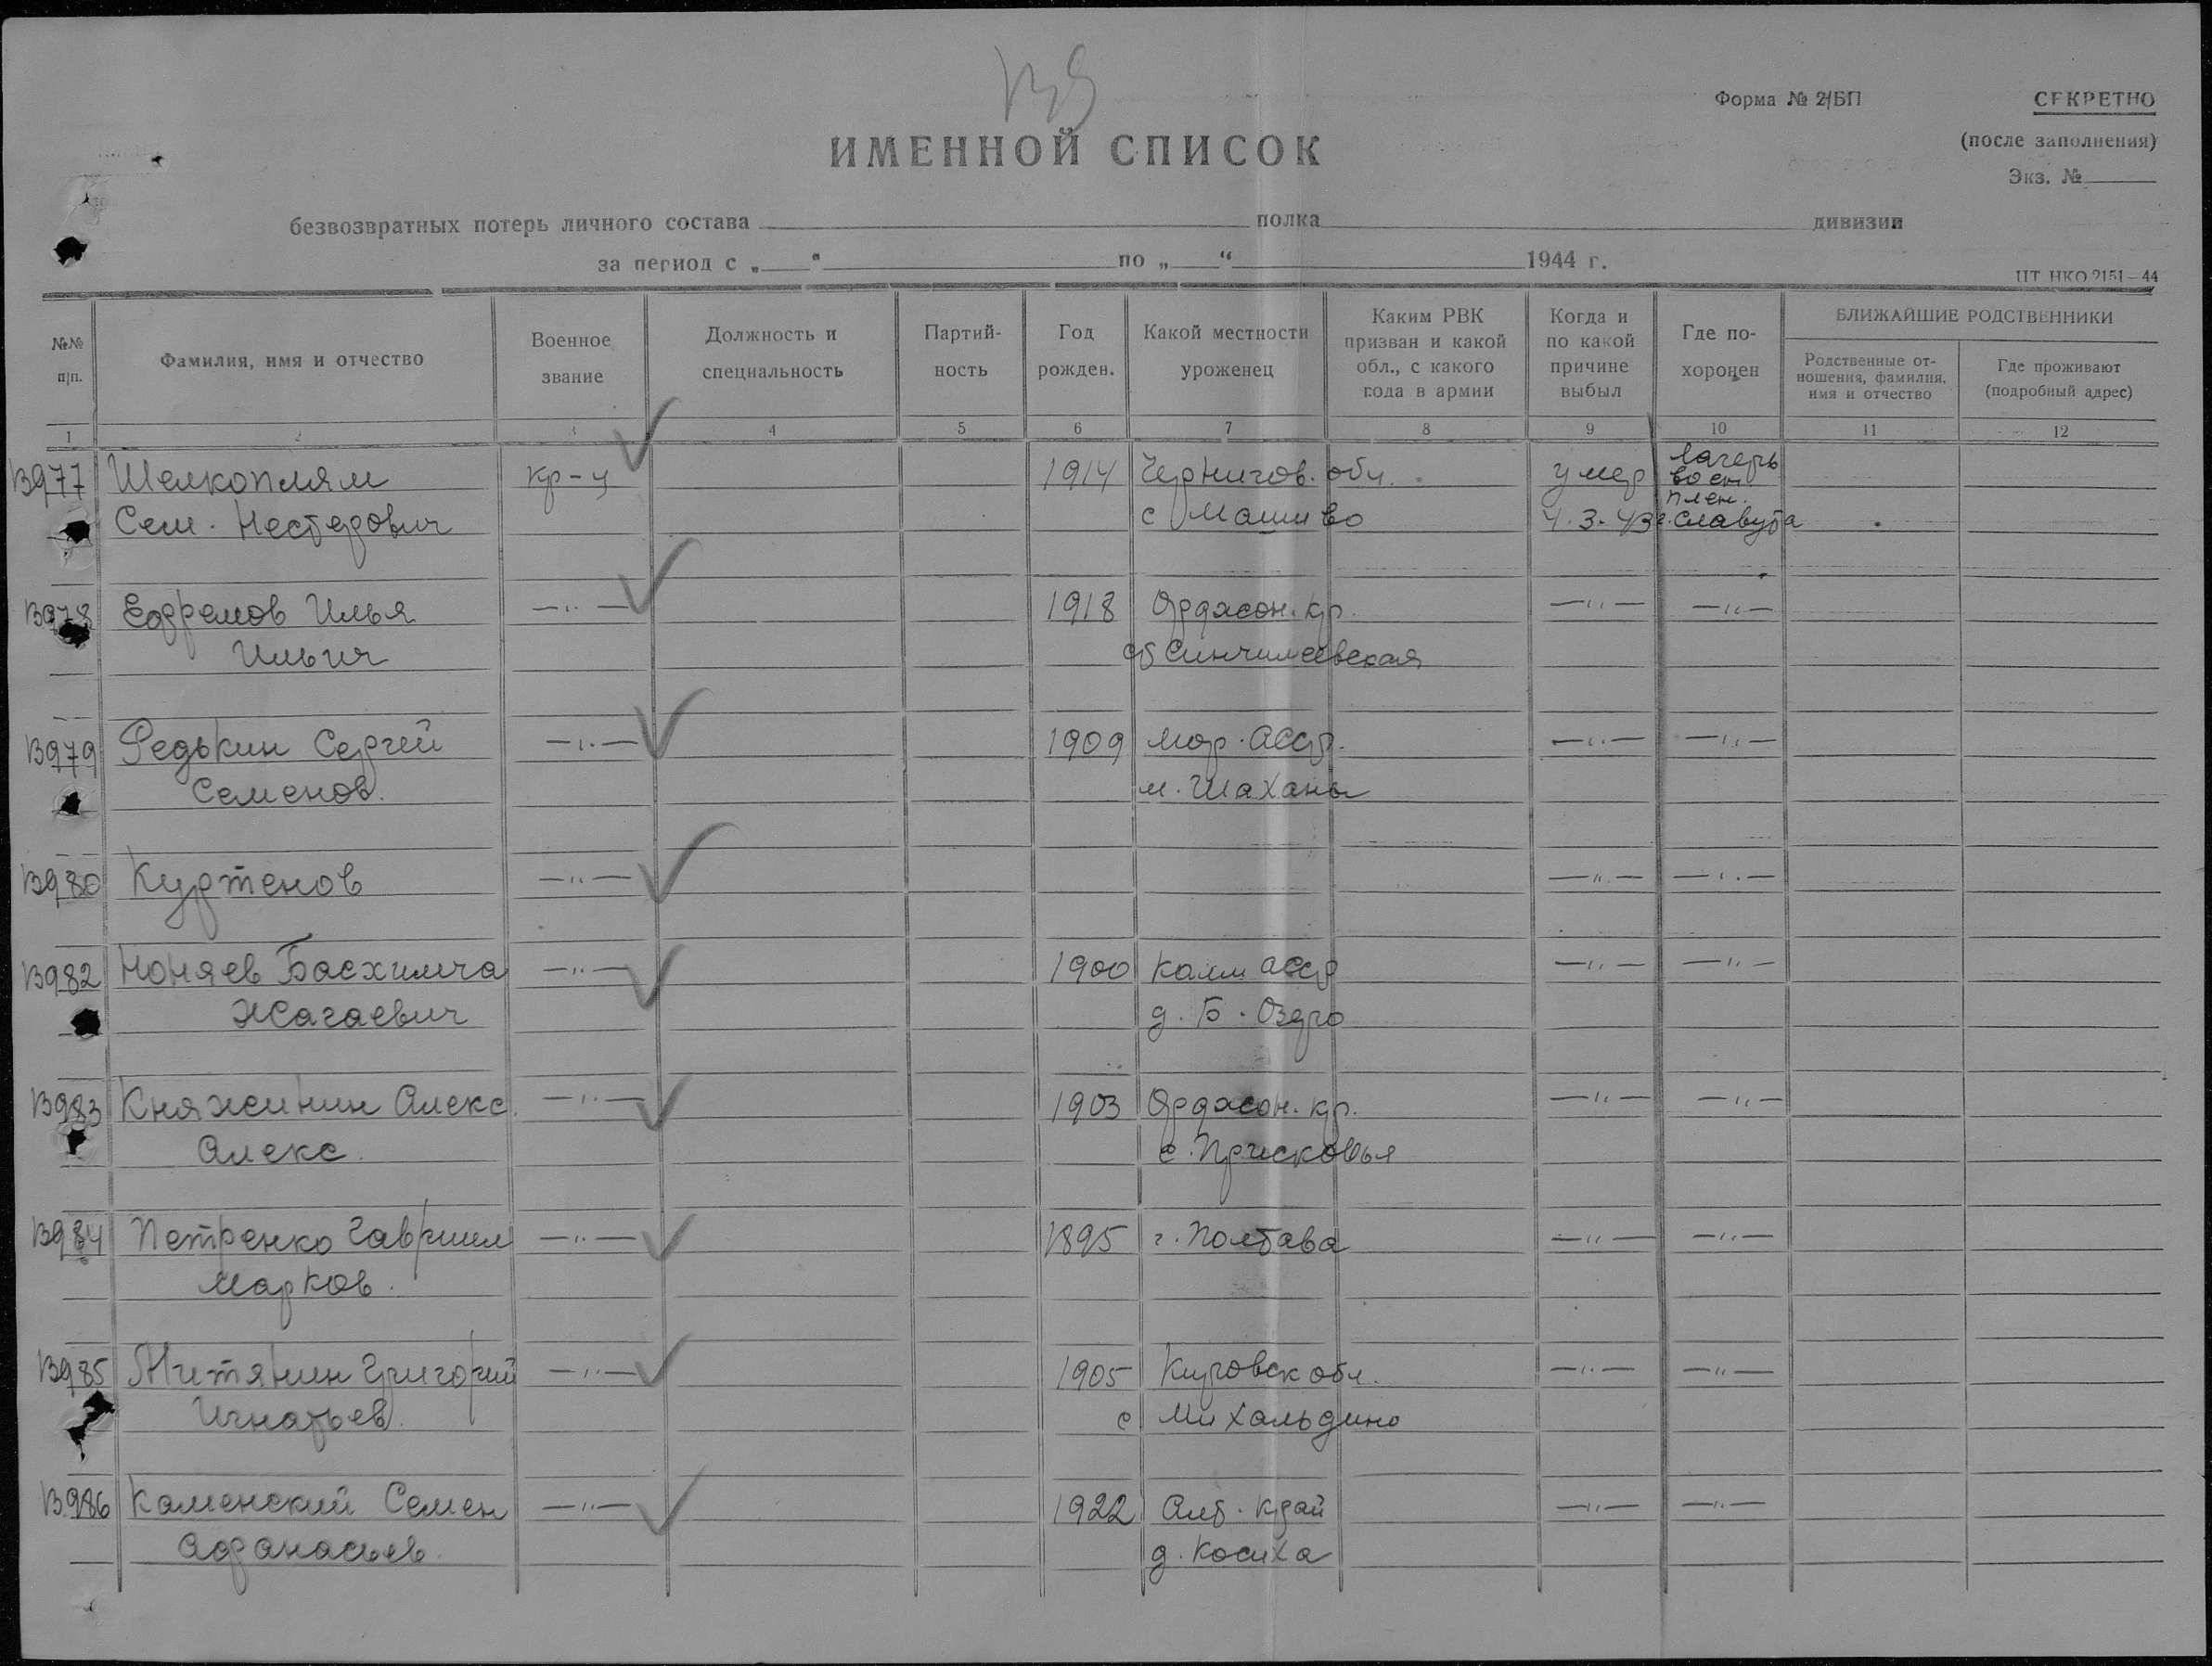 139
Форма № 2/БП
СЕКРЕТНО
(после заполнения)
Экз. №
ИМЕННОЙ СПИСОК
безвозвратных потерь личного состава полка дивизии
за период с „ “ по „ “ 1944 г.
ЦТ НКО 2151—44
№№ п/п.
Фамилия, имя и отчество
Военное звание
Должность и специальность
Партий-ность
Год рожден.
Какой местности уроженец
Каким РВК призван и какой обл., с какого года в армии
Когда и по какой причине выбыл
Где по-хоронен
БЛИЖАЙШИЕ РОДСТВЕННИКИ
Родственные от-ношения, фамилия, имя и отчество
Где проживают (подробный адрес)
1 2 3 4 5 6 7 8 9 10 11 12
13977 Шелкоплям кр-ц 1914 Чернигов. обл. умер лагерь воен плен.
Сем. Нестерович с Машиво 4.3.43 г. Славута
13978 Ефремов Илья —"— 1918 Орджон. кр. —"— —"—
Ильич ст Синчилеевская
13979 Редькин Сергей —"— 1909 Мор. АССР. —"— —"—
Семенов. м. Шаханы
13980 Куртенов —"— —"— —"—
13982 Ноняев Басхимча —"— 1900 Калм АССР —"— —"—
Жагаевич д. Б. Озеро
13983 Княжинин Алекс. —"— 1903 Орджон. кр. —"— —"—
Алекс. с. Присковья
13984 Петренко Гавриил —"— 1895 г. Полтава —"— —"—
Марков.
13985 Митянин Григорий —"— 1905 Кировск обл. —"— —"—
Игнатьев. с Михальдино
13986 Каменский Семен —"— 1922 Алт. край —"— —"—
Афанасьев. д. Косиха